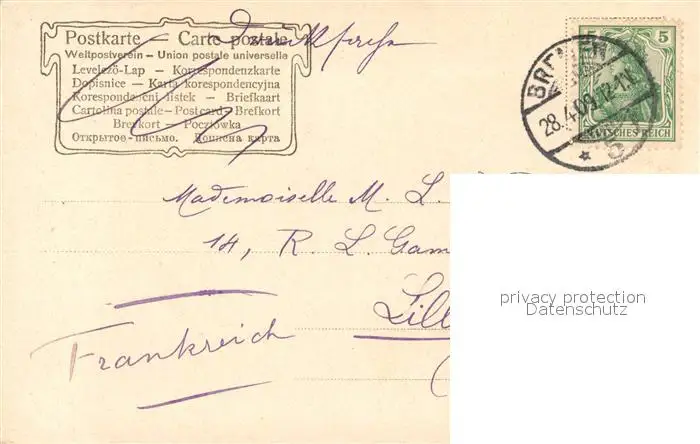 Postkarte – Carte postale
Weltpostverein – Union postale universelle
Levelező-Lap – Korrespondenzkarte
Dopisnice – Karta korespondencyjna
Korespondencni listek – Briefkaart
Cartolina postale – Postcard – Brefkort
Brevkort – Pocztówka
Открытое письмо. Дописна карта
Drucksache
5
BREMEN
28.4.09.12-1N.
5
DEUTSCHES REICH
Mademoiselle M. L.
14, R. L. Gam
Lill
Frankreich
privacy protection
Datenschutz